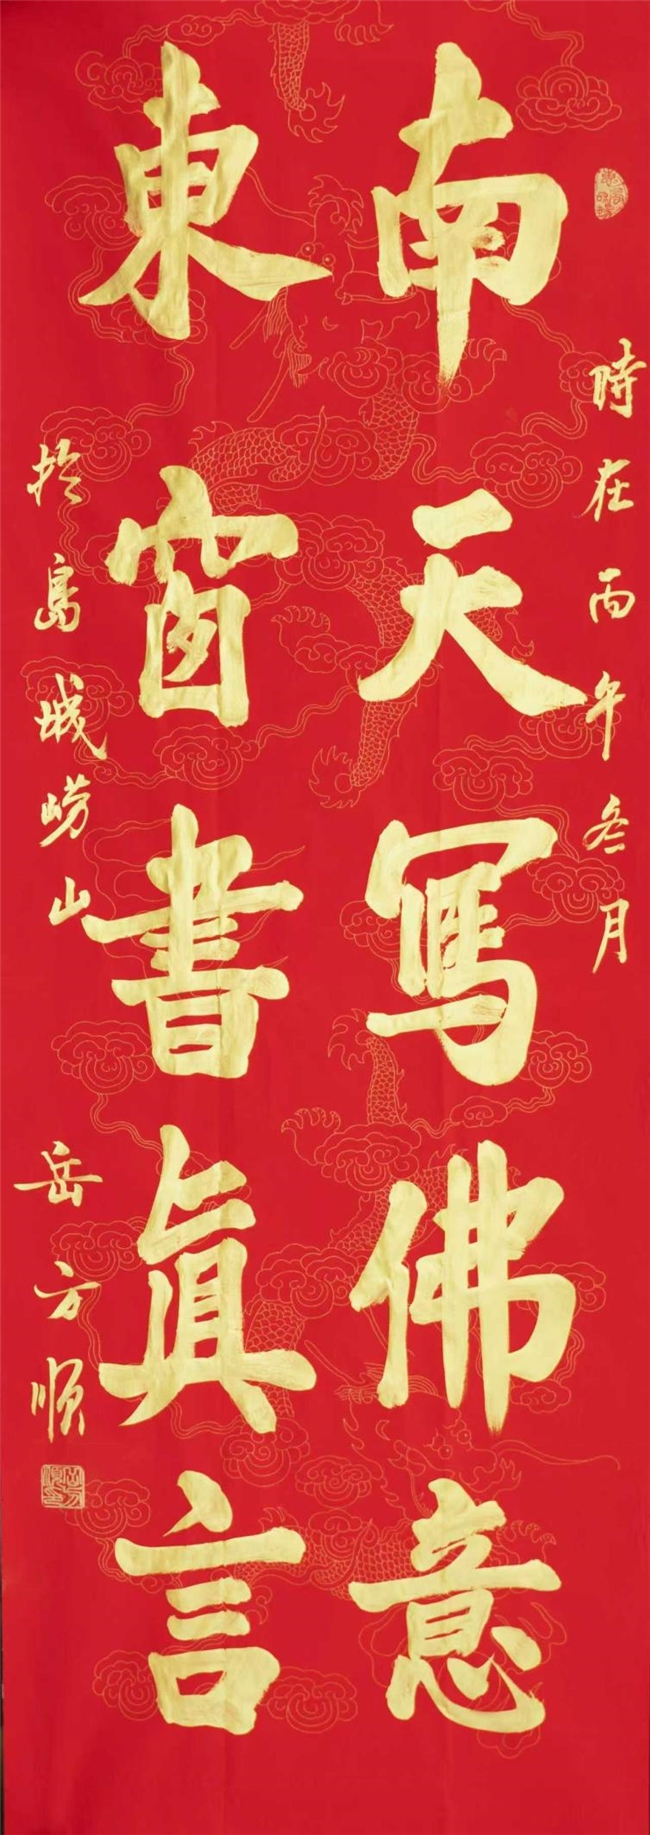 時在丙午冬月
南天寫佛意
東窗書眞言
扵島城崂山
岳方順